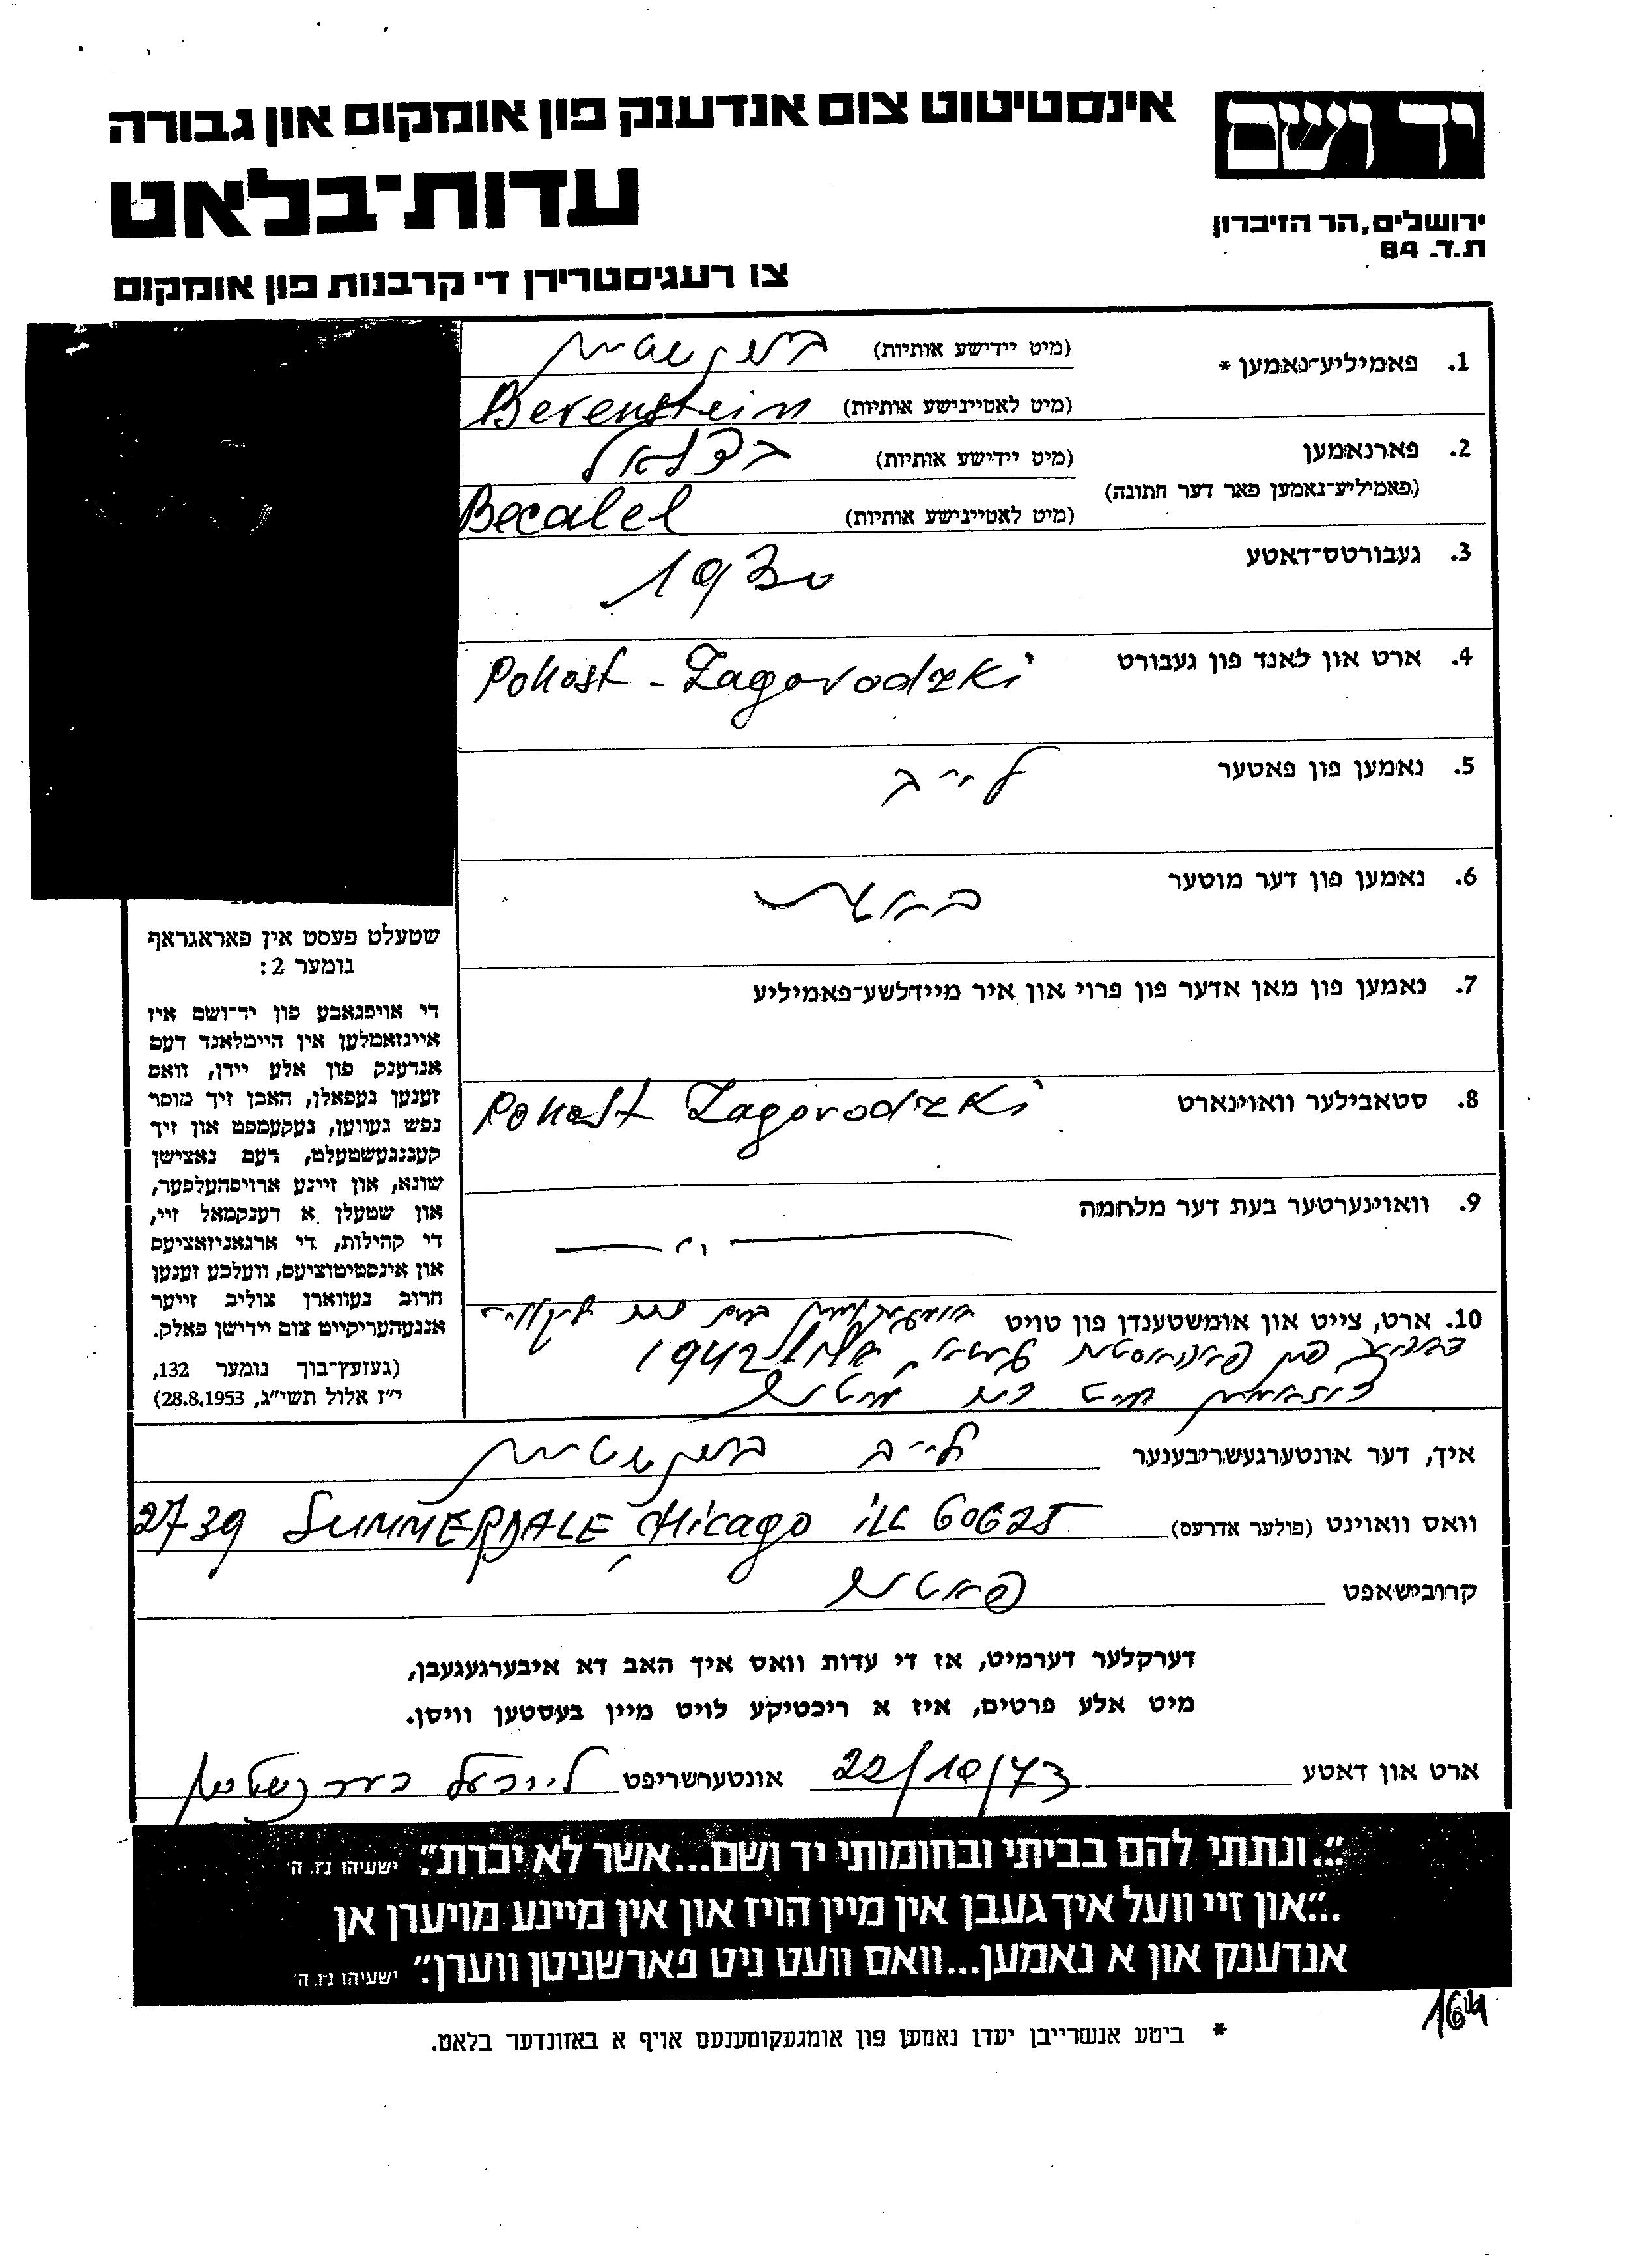 יד ושם
ירושלים, הר הזיכרון
ת.ד. 84
אינסטיטוט צום אנדענק פון אומקום און גבורה
עדות־בלאט
צו רעגיסטרירן די קרבנות פון אומקום
1. פאמיליע־נאמען * (מיט יידישע אותיות)
(מיט לאטיינישע אותיות) Berenstein
2. פארנאמען (מיט יידישע אותיות) בצלאל
(פאמיליע־נאמען פאר דער חתונה)
(מיט לאטיינישע אותיות) Becalel
3. געבורטס־דאטע 1930
4. ארט און לאנד פון געבורט Pohost - Zagorodzki
5. נאמען פון פאטער לייב
6. נאמען פון דער מוטער
7. נאמען פון מאן אדער פון פרוי און איר מיידלשע־פאמיליע
8. סטאבילער וואוינארט Pohost Zagorodzki
9. וואוינערטער בעת דער מלחמה — " —
10. ארט, צייט און אומשטענדן פון טויט
1942
מיט
שטעלט פעסט אין פאראגראף
נומער 2:
די אויפגאבע פון יד־ושם איז
איינזאמלען אין היימלאנד דעם
אנדענק פון אלע יידן, וואס
זענען געפאלן, האבן זיך מוסר
נפש געווען, געקעמפט און זיך
קעגנגעשטעלט, דעם נאצישן
שונא, און זיינע ארויסהעלפער,
און שטעלן א דענקמאל זיי,
די קהילות, די ארגאניזאציעס
און אינסטיטוציעס, וועלכע זענען
חרוב געווארן צוליב זייער
אנגעהעריקייט צום יידישן פאלק.
(געזעץ־בוך נומער 132,
י"ז אלול תשי"ג, 28.8.1953)
איך, דער אונטערגעשריבענער לייב
וואס וואוינט (פולער אדרעס) 2739 SUMMERDALE, CHicago 60625
קרובישאפט פאטער
דערקלער דערמיט, אז די עדות וואס איך האב דא איבערגעגעבן,
מיט אלע פרטים, איז א ריכטיקע לויט מיין בעסטען וויסן.
ארט און דאטע 22/10/73 אונטערשריפט
"...ונתתי להם בביתי ובחומותי יד ושם...אשר לא יכרת". ישעיהו נ"ו. ה'
..."און זיי וועל איך געבן אין מיין הויז און אין מיינע מויערן אן
אנדענק און א נאמען...וואס וועט ניט פארשניטן ווערן". ישעיהו נ"ו. ה'
* ביטע אנשרייבן יעדן נאמען פון אומגעקומענעם אויף א באזונדער בלאט.